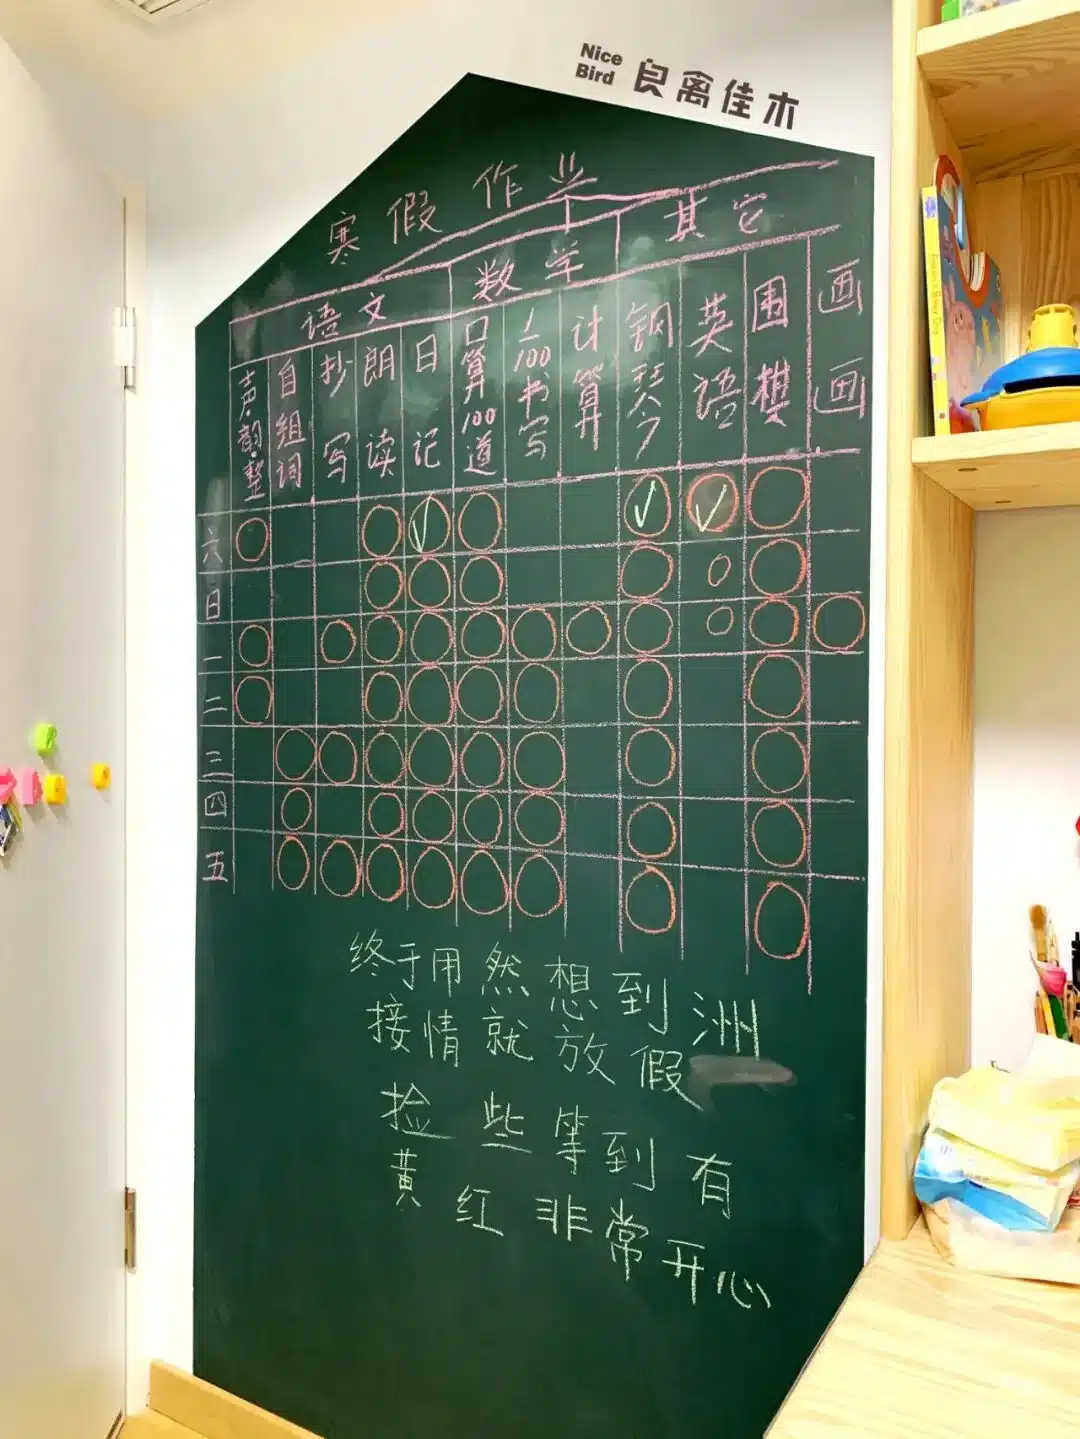 Nice
Bird 良禽佳木
寒假作业
语文 数学 其它
声韵整 自组词 抄写 朗读 日记 口算100道 1/100书写 计算 钢琴 英语 围棋 画画
六
日
一
二
三
四
五
终于用然想到洲
接情就放假
捡些等到有
黄红非常开心